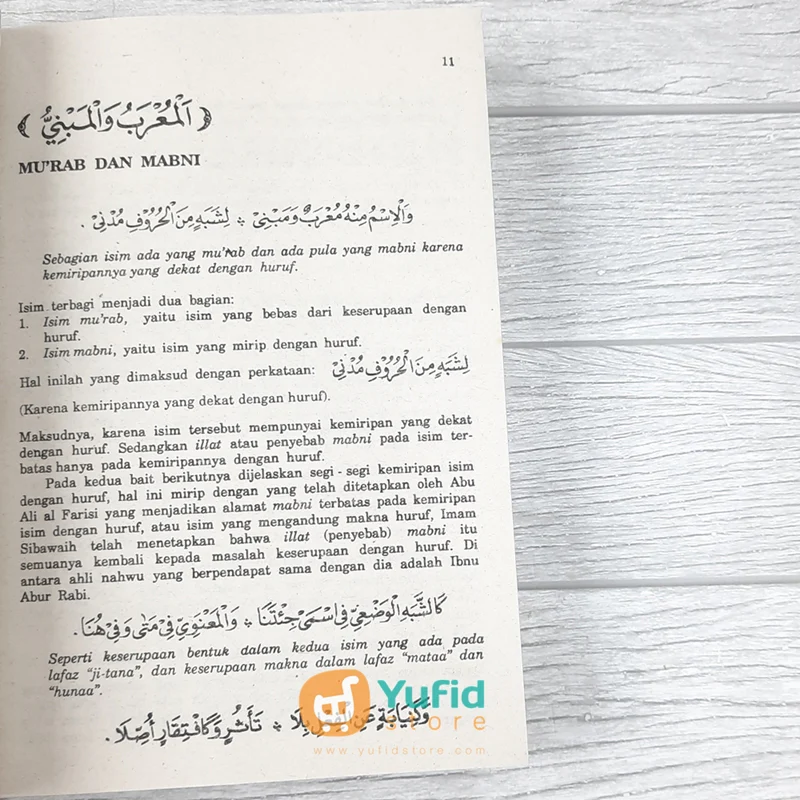 11
﴿ اَلْمُعْرَبُ وَالْمَبْنِيُّ ﴾
MU'RAB DAN MABNI
وَالْاِسْمُ مِنْهُ مُعْرَبٌ وَمَبْنِىْ ۞ لِشَبَهٍ مِنَ الْحُرُوْفِ مُدْنِىْ .
Sebagian isim ada yang mu'rab dan ada pula yang mabni karena
kemiripannya yang dekat dengan huruf.
Isim terbagi menjadi dua bagian:
1. Isim mu'rab, yaitu isim yang bebas dari keserupaan dengan
huruf.
2. Isim mabni, yaitu isim yang mirip dengan huruf.
Hal inilah yang dimaksud dengan perkataan: لِشَبَهٍ مِنَ الْحُرُوْفِ مُدْنِىْ
(Karena kemiripannya yang dekat dengan huruf).
Maksudnya, karena isim tersebut mempunyai kemiripan yang dekat
dengan huruf. Sedangkan illat atau penyebab mabni pada isim ter-
batas hanya pada kemiripannya dengan huruf.
Pada kedua bait berikutnya dijelaskan segi - segi kemiripan isim
dengan huruf, hal ini mirip dengan yang telah ditetapkan oleh Abu
Ali al Farisi yang menjadikan alamat mabni terbatas pada kemiripan
isim dengan huruf, atau isim yang mengandung makna huruf, Imam
Sibawaih telah menetapkan bahwa illat (penyebab) mabni itu
semuanya kembali kepada masalah keserupaan dengan huruf. Di
antara ahli nahwu yang berpendapat sama dengan dia adalah Ibnu
Abur Rabi.
كَالشَّبَهِ الْوَضْعِىِّ فِى اسْمَىْ جِئْتَنَا ۞ وَالْمَعْنَوِىِّ فِىْ مَتٰى وَفِىْ هُنَا .
Seperti keserupaan bentuk dalam kedua isim yang ada pada
lafaz "ji-tana", dan keserupaan makna dalam lafaz "mataa" dan
"hunaa".
وَكَنِيَابَةٍ عَنِ الْفِعْلِ بِلَا ۞ تَأَثُّرٍ وَكَافْتِقَارٍ اُصِّلَا .
Yufid
store
www.yufidstore.com